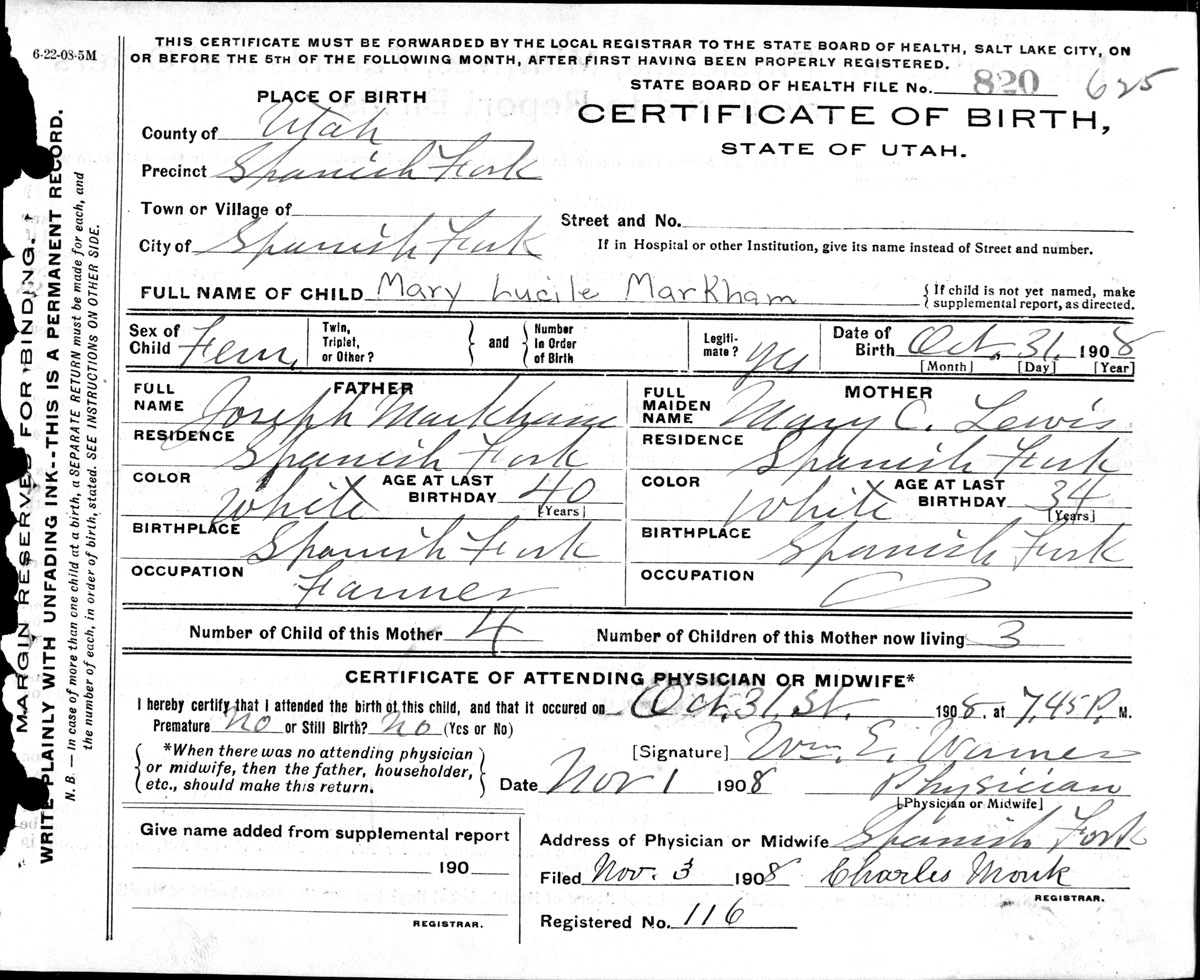 6-22-08-5M
THIS CERTIFICATE MUST BE FORWARDED BY THE LOCAL REGISTRAR TO THE STATE BOARD OF HEALTH, SALT LAKE CITY, ON
OR BEFORE THE 5TH OF THE FOLLOWING MONTH, AFTER FIRST HAVING BEEN PROPERLY REGISTERED.
STATE BOARD OF HEALTH FILE No. 820 625
CERTIFICATE OF BIRTH,
STATE OF UTAH.
PLACE OF BIRTH
County of Utah
Precinct Spanish Fork
Town or Village of
Street and No.
City of Spanish Fork
If in Hospital or other Institution, give its name instead of Street and number.
FULL NAME OF CHILD Mary Lucile Markham
{ If child is not yet named, make
supplemental report, as directed.
Sex of Child Fem.
Twin, Triplet, or Other?
and
Number in Order of Birth
Legiti-mate? yes
Date of Birth Oct. 31. 1908
[Month] [Day] [Year]
FATHER
FULL NAME Joseph Markham
RESIDENCE Spanish Fork
COLOR White AGE AT LAST BIRTHDAY 40
[Years]
BIRTHPLACE Spanish Fork
OCCUPATION Farmer
MOTHER
FULL MAIDEN NAME Mary C. Lewis
RESIDENCE Spanish Fork
COLOR White AGE AT LAST BIRTHDAY 34
[Years]
BIRTHPLACE Spanish Fork
OCCUPATION
Number of Child of this Mother 4 Number of Children of this Mother now living 3
CERTIFICATE OF ATTENDING PHYSICIAN OR MIDWIFE*
I hereby certify that I attended the birth of this child, and that it occured on Oct. 31 St. 1908, at 7,45 P. M.
Premature No or Still Birth? No (Yes or No)
*When there was no attending physician
or midwife, then the father, householder,
etc., should make this return.
[Signature] Wm. E. Warner
Date Nov 1 1908 Physician
[Physician or Midwife]
Give name added from supplemental report
190
REGISTRAR.
Address of Physician or Midwife Spanish Fork
Filed Nov. 3 1908 Charles Monk
REGISTRAR.
Registered No. 116
MARGIN RESERVED FOR BINDING.
WRITE PLAINLY WITH UNFADING INK--THIS IS A PERMANENT RECORD.
N. B. — In case of more than one child at a birth, a SEPARATE RETURN must be made for each, and
the number of each, in order of birth, stated. SEE INSTRUCTIONS ON OTHER SIDE.